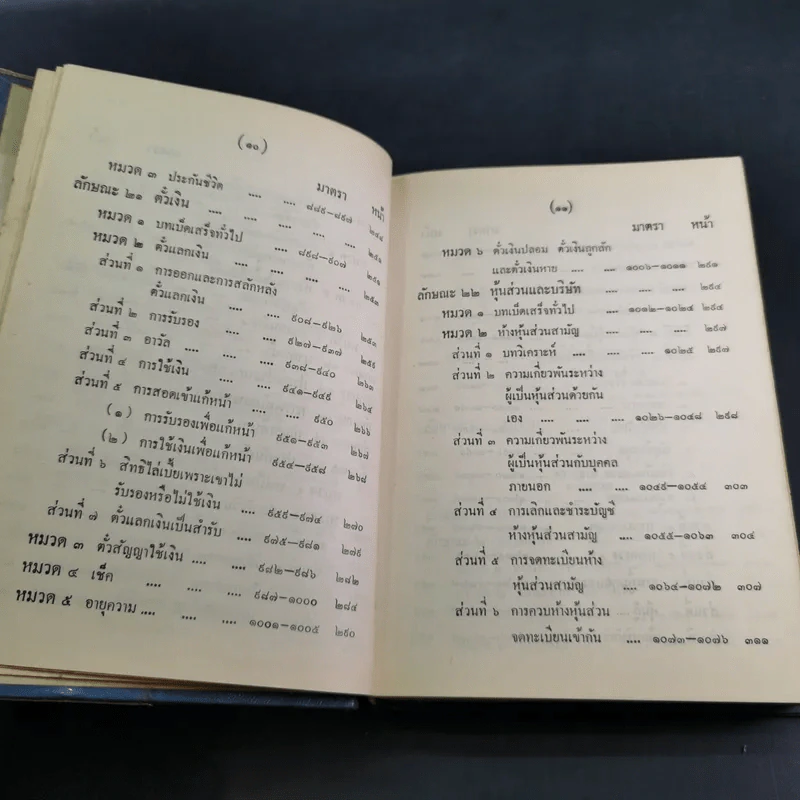 (๑๐)
มาตรา หน้า
หมวด ๓ ประกันชีวิต .... .... ๘๘๙–๘๙๗ ๒๔๔
ลักษณะ ๒๑ ตั๋วเงิน .... .... .... .... ๒๕๑
หมวด ๑ บทเบ็ดเสร็จทั่วไป .... .... ๘๙๘–๙๐๗ ๒๕๑
หมวด ๒ ตั๋วแลกเงิน .... .... .... ....
ส่วนที่ ๑ การออกและการสลักหลัง
ตั๋วแลกเงิน .... .... ๙๐๘–๙๒๖ ๒๕๓
ส่วนที่ ๒ การรับรอง .... .... ๙๒๗–๙๓๗ ๒๕๙
ส่วนที่ ๓ อาวัล .... .... .... ๙๓๘–๙๔๐ ๒๖๑
ส่วนที่ ๔ การใช้เงิน .... .... ๙๔๑–๙๔๙
ส่วนที่ ๕ การสอดเข้าแก้หน้า .... ๙๕๐ ๒๖๔
(๑) การรับรองเพื่อแก้หน้า ๙๕๑–๙๕๓ ๒๖๖
(๒) การใช้เงินเพื่อแก้หน้า ๙๕๔–๙๕๘ ๒๖๘
ส่วนที่ ๖ สิทธิไล่เบี้ยเพราะเขาไม่
รับรองหรือไม่ใช้เงิน .... ๙๕๙–๙๗๔ ๒๗๐
ส่วนที่ ๗ ตั๋วแลกเงินเป็นสำรับ .... ๙๗๕–๙๘๑ ๒๗๙
หมวด ๓ ตั๋วสัญญาใช้เงิน .... .... ๙๘๒–๙๘๖ ๒๘๒
หมวด ๔ เช็ค .... .... .... ๙๘๗–๑๐๐๐ ๒๘๔
หมวด ๕ อายุความ .... .... .... ๑๐๐๑–๑๐๐๕ ๒๙๐
(๑๑)
มาตรา หน้า
หมวด ๖ ตั๋วเงินปลอม ตั๋วเงินถูกลัก
และตั๋วเงินหาย .... .... ๑๐๐๖–๑๐๑๑ ๒๙๑
ลักษณะ ๒๒ หุ้นส่วนและบริษัท .... .... .... ๒๙๔
หมวด ๑ บทเบ็ดเสร็จทั่วไป .... .... ๑๐๑๒–๑๐๒๔ ๒๙๔
หมวด ๒ ห้างหุ้นส่วนสามัญ .... .... .... ๒๙๗
ส่วนที่ ๑ บทวิเคราะห์ .... .... .... ๑๐๒๕ ๒๙๗
ส่วนที่ ๒ ความเกี่ยวพันระหว่าง
ผู้เป็นหุ้นส่วนด้วยกัน
เอง .... .... .... ๑๐๒๖–๑๐๔๘ ๒๙๘
ส่วนที่ ๓ ความเกี่ยวพันระหว่าง
ผู้เป็นหุ้นส่วนกับบุคคล
ภายนอก .... .... ๑๐๔๙–๑๐๕๔ ๓๐๓
ส่วนที่ ๔ การเลิกและชำระบัญชี
ห้างหุ้นส่วนสามัญ .... ๑๐๕๕–๑๐๖๓ ๓๐๔
ส่วนที่ ๕ การจดทะเบียนห้าง
หุ้นส่วนสามัญ .... ๑๐๖๔–๑๐๗๒ ๓๐๗
ส่วนที่ ๖ การควบห้างหุ้นส่วน
จดทะเบียนเข้ากัน .... ๑๐๗๓–๑๐๗๖ ๓๑๑